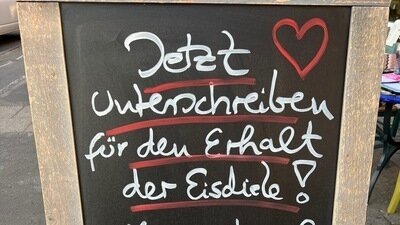 Jetzt
unterschreiben
für den Erhalt
der Eisdiele!